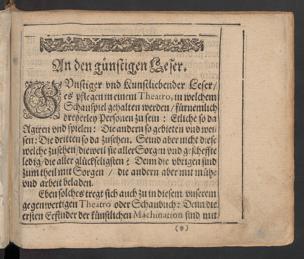 An den günstigen Leser.
GÜnstiger vnd Kunstliebender Leser/
es pflegen in einem Theatro, in welchem
Schauspiel gehalten werden / fürnemlich
dreyerley Personen zu sein : Etliche so da
Agiren vnd spielen : Die andern so gebieten vnd wei-
sen : Die dritten so da zusehen. Seind aber nicht diese
welche zusehen / dieweil sie aller Sorgen vnd gescheffte
ledig / die aller glückseligsten ; Denn die vbrigen sind
zum theil mit Sorgen / die andern aber mit mühe
vnd arbeit beladen.
Eben solches tregt sich auch zu in diesem vnserem
gegenwertigen Theatro oder Schaubuch : Denn die
ersten Erfinder der künstlichen Machination sind mit